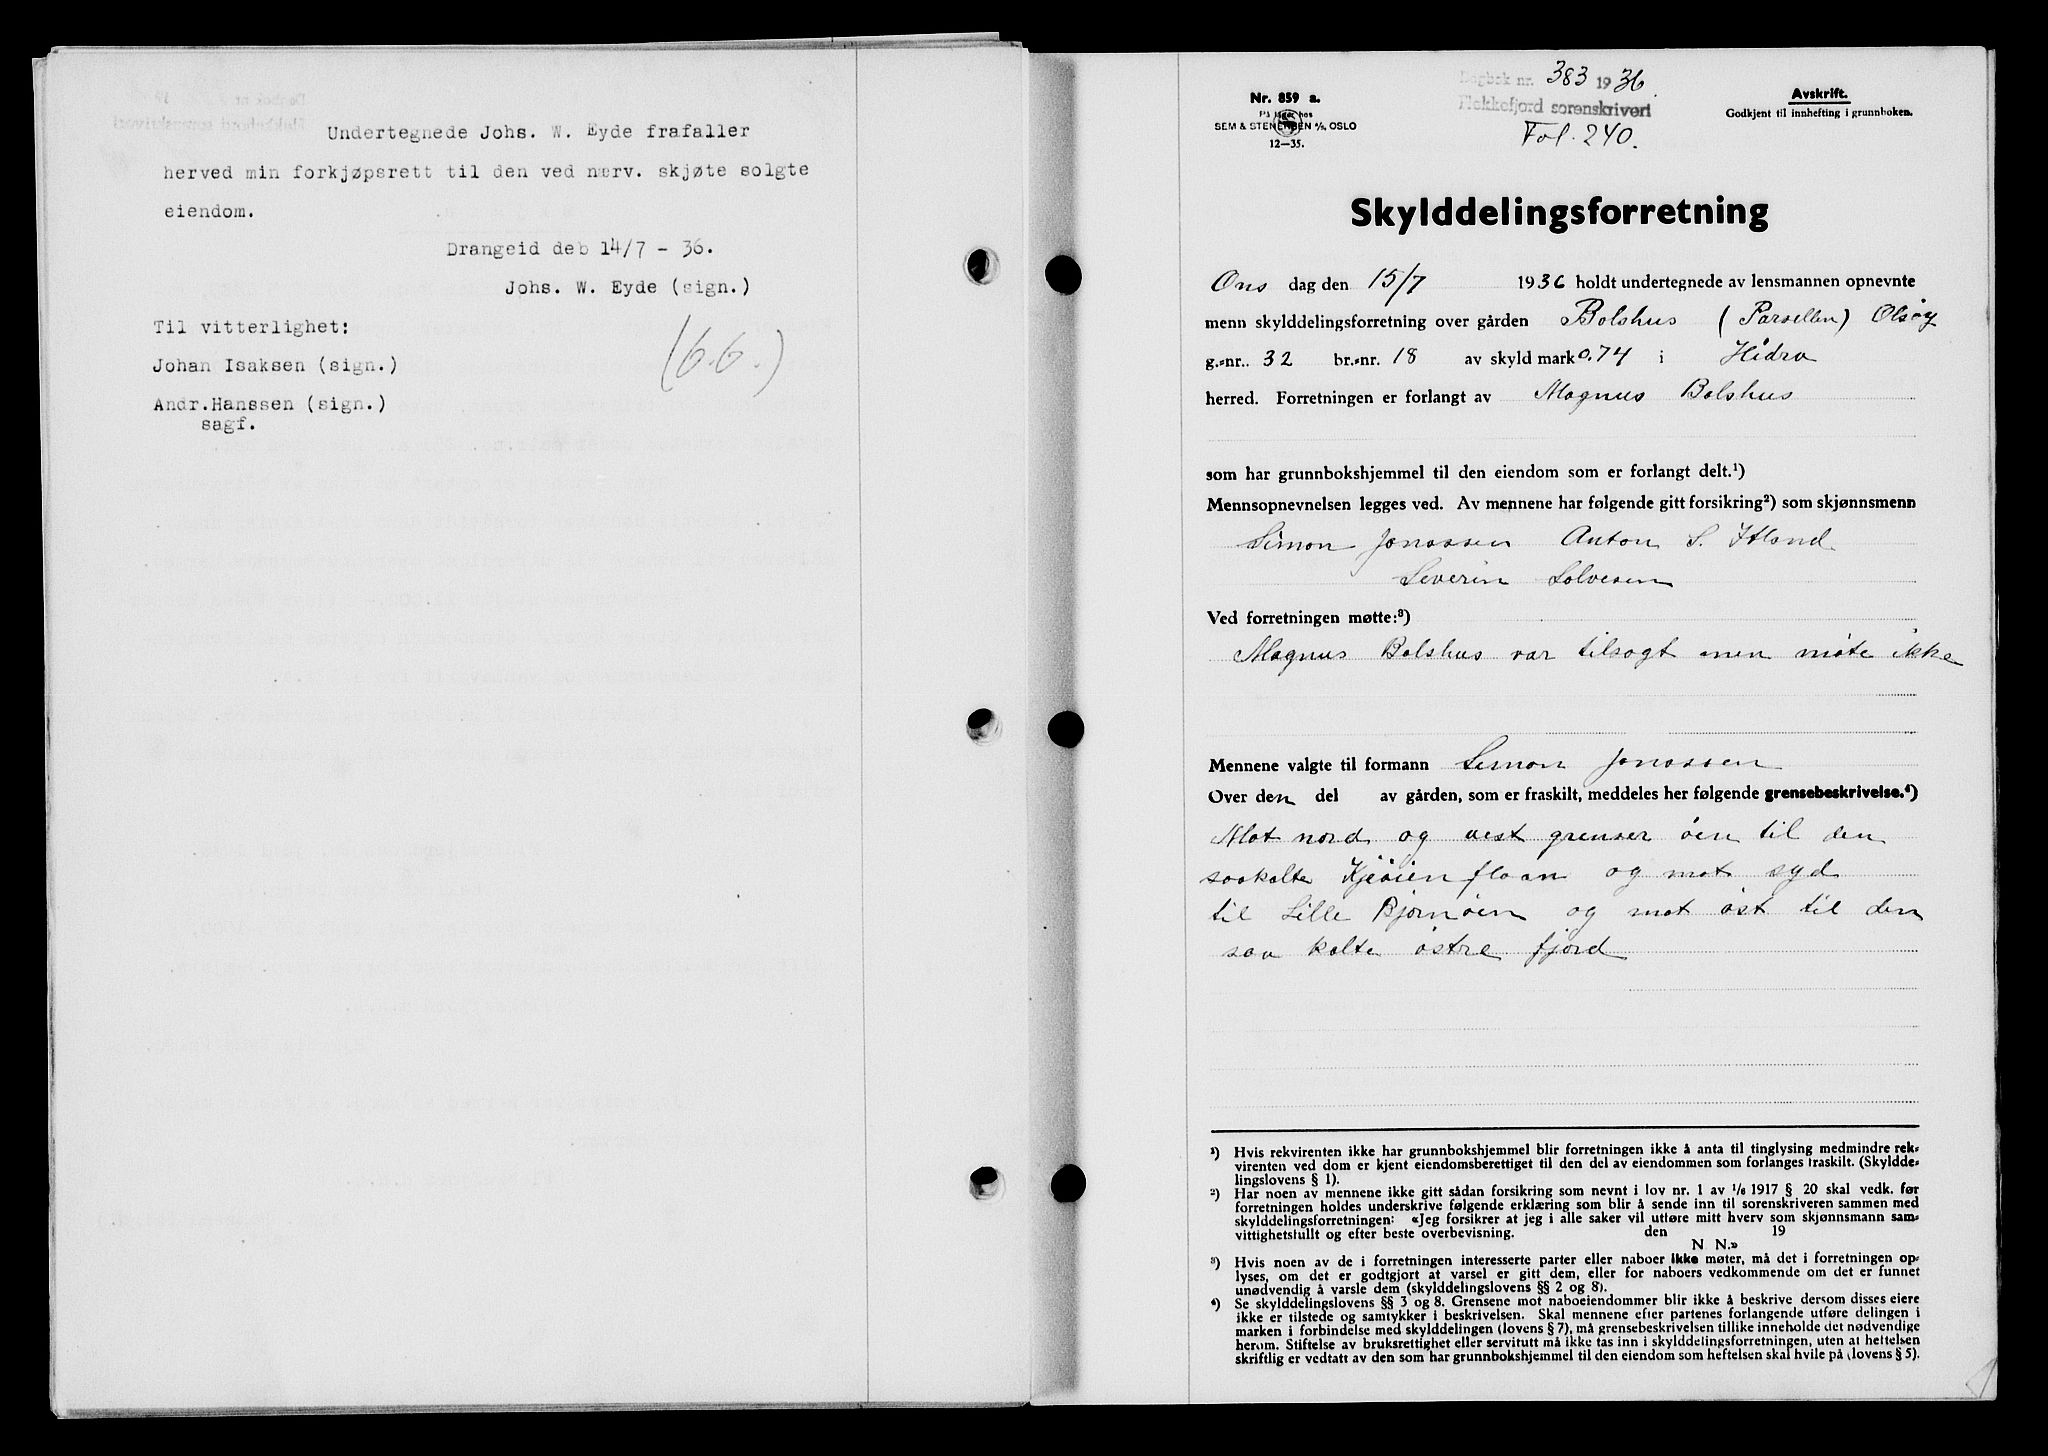 Undertegnede Johs. W. Eyde frafaller
herved min forkjøpsrett til den ved nærv. skjøte solgte
eiendom.
Drangeid deb 14/7 - 36.
Johs. W. Eyde (sign.)
Til vitterlighet:
Johan Isaksen (sign.)
Andr.Hanssen (sign.)
sagf.
(6.6.)
Dagbok nr. 383 1936.
Flekkefjord sorenskriveri
Fol. 240.
Nr. 859 a.
På lager hos
SEM & STENERSEN A/S, OSLO
12—35.
Avskrift.
Godkjent til innhefting i grunnboken.
Skylddelingsforretning
Ons dag den 15/7 1936 holdt undertegnede av lensmannen opnevnte
menn skylddelingsforretning over gården Bolshus (Parsellen) Olsøy
g.-nr. 32 br.-nr. 18 av skyld mark 0.74 i Hidra
herred. Forretningen er forlangt av Magnus Bolshus
som har grunnbokshjemmel til den eiendom som er forlangt delt.¹)
Mennsopnevnelsen legges ved. Av mennene har følgende gitt forsikring²) som skjønnsmenn
Simon Jonassen Anton S. Itland
Severin Solvesen
Ved forretningen møtte:³)
Magnus Bolshus var tilsagt men møte ikke
Mennene valgte til formann Simon Jonassen
Over den del av gården, som er fraskilt, meddeles her følgende grensebeskrivelse.⁴)
Mot nord og vest grenser öen til den
saakalte Kjeöienfloan og mot syd
til Lille Bjørnöen og mot öst til den
saa kalte östre fjord
¹) Hvis rekvirenten ikke har grunnbokshjemmel blir forretningen ikke å anta til tinglysing medmindre rek-
virenten ved dom er kjent eiendomsberettiget til den del av eiendommen som forlanges fraskilt. (Skyldde-
lingslovens § 1).
²) Har noen av mennene ikke gitt sådan forsikring som nevnt i lov nr. 1 av 1/6 1917 § 20 skal vedk. før
forretningen holdes underskrive følgende erklæring som blir å sende inn til sorenskriveren sammen med
skylddelingsforretningen: «Jeg forsikrer at jeg i alle saker vil utføre mitt hverv som skjønnsmann sam-
vittighetsfullt og efter beste overbevisning. den 19
N N.»
³) Hvis noen av de i forretningen interesserte parter eller naboer ikke møter, må det i forretningen op-
lyses, om det er godtgjort at varsel er gitt dem, eller for naboers vedkommende om det er funnet
unødvendig å varsle dem (skylddelingslovens §§ 2 og 8).
⁴) Se skylddelingslovens §§ 3 og 8. Grensene mot naboeiendommer blir ikke å beskrive dersom disses eiere
ikke er tilstede og samtykker i beskrivelsen. Skal mennene efter partenes forlangende utføre delingen i
marken i forbindelse med skylddelingen (lovens § 7), må grensebeskrivelsen tillike inneholde det nødvendige
herom. Stiftelse av bruksrettighet eller servitutt må ikke tas inn i skylddelingsforretningen, uten at heftelsen
skriftlig er vedtatt av den som har grunnbokshjemmel til den eiendom som heftelsen skal hvile på (lovens § 5).